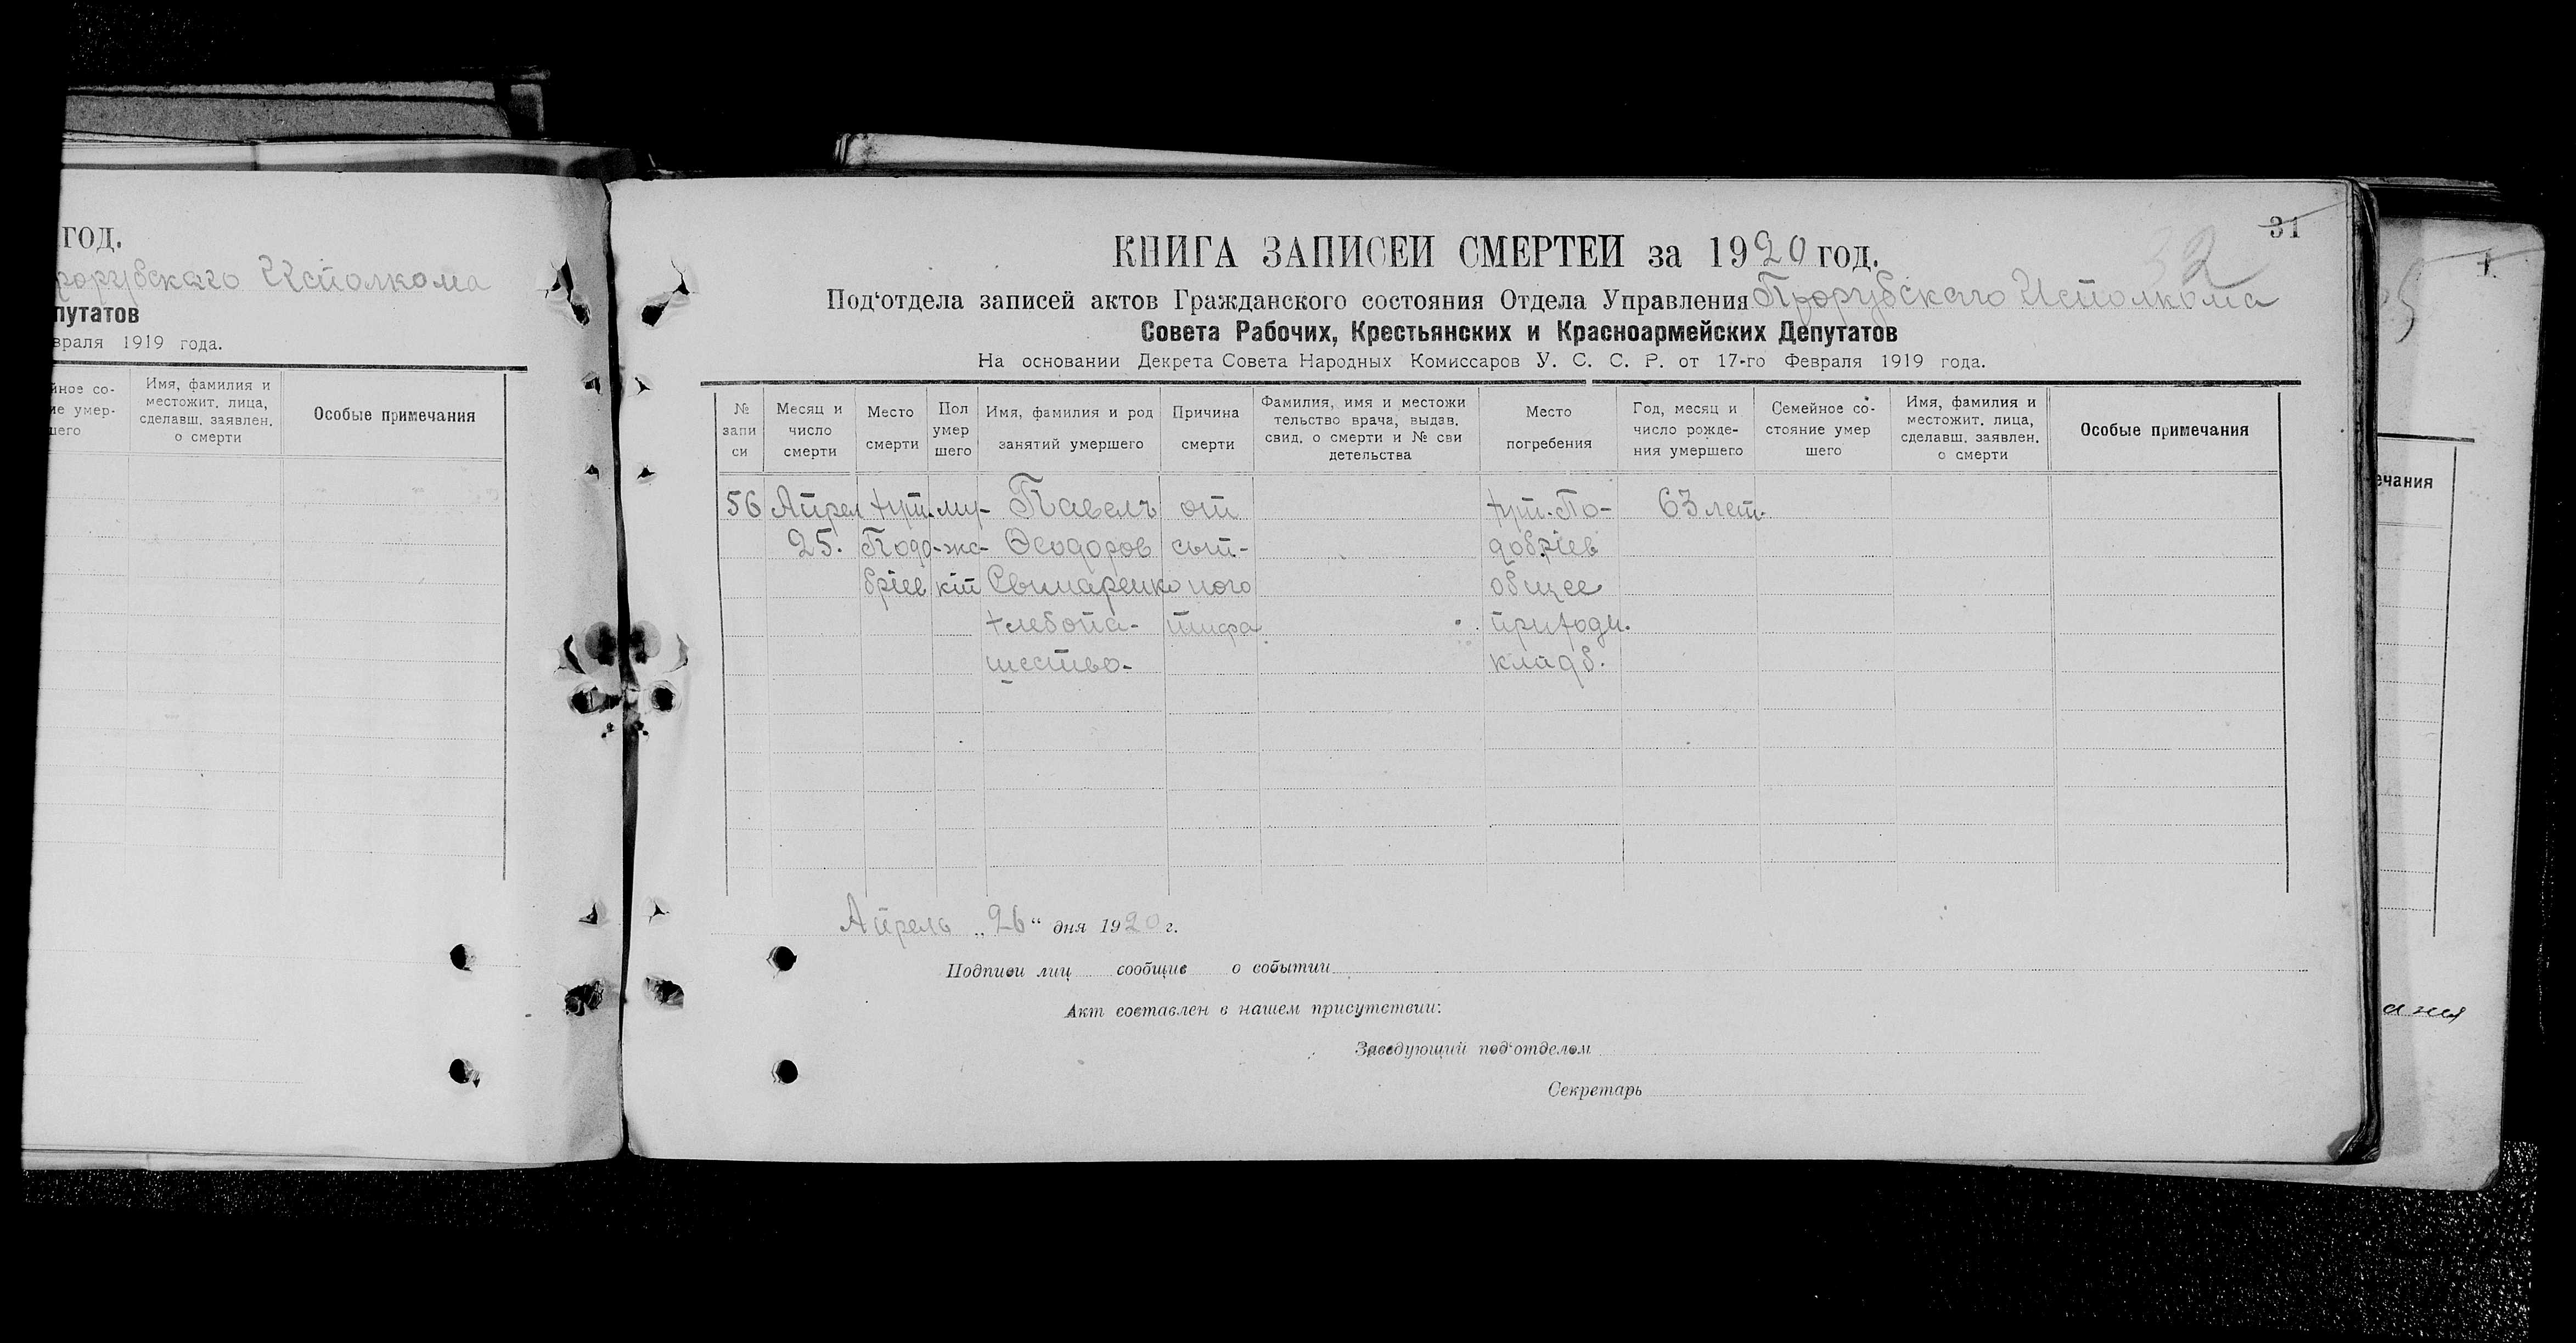 ГОД.
рорубскаго Исполкома
путатов
враля 1919 года.
йное со-
ие умер-
шего
Имя, фамилия и
местожит. лица,
сделавш. заявлен.
о смерти
Особые примечания
31
32
КНИГА ЗАПИСЕЙ СМЕРТЕЙ за 1920 год.
Под‘отдела записей актов Гражданского состояния Отдела Управления Прорубскаго Исполкома
Совета Рабочих, Крестьянских и Красноармейских Депутатов
На основании Декрета Совета Народных Комиссаров У. С. С. Р. от 17-го Февраля 1919 года.
№
запи
си
Месяц и
число
смерти
Место
смерти
Пол
умер
шего
Имя, фамилия и род
занятий умершего
Причина
смерти
Фамилия, имя и местожи
тельство врача, выдав.
свид. о смерти и № сви
детельства
Место
погребения
Год, месяц и
число рожде-
ния умершего
Семейное со-
стояние умер
шего
Имя, фамилия и
местожит. лица,
сделавш. заявлен.
о смерти
Особые примечания
56
Апрел
25.
хут.
Подо-
бріев
му-
жс-
кій
Павелъ
Ѳеодоров
Свинаренко
хлебопа-
шество-
от
сып-
ного
тифа
хут. По-
добріев
общее
приходи.
кладб.
63 лет.
Апрель „26“ дня 1920 г.
Подписи лиц сообщив о событии
Акт составлен в нашем присутствии:
Заведующий под‘отделом
Секретарь
ечания
ания